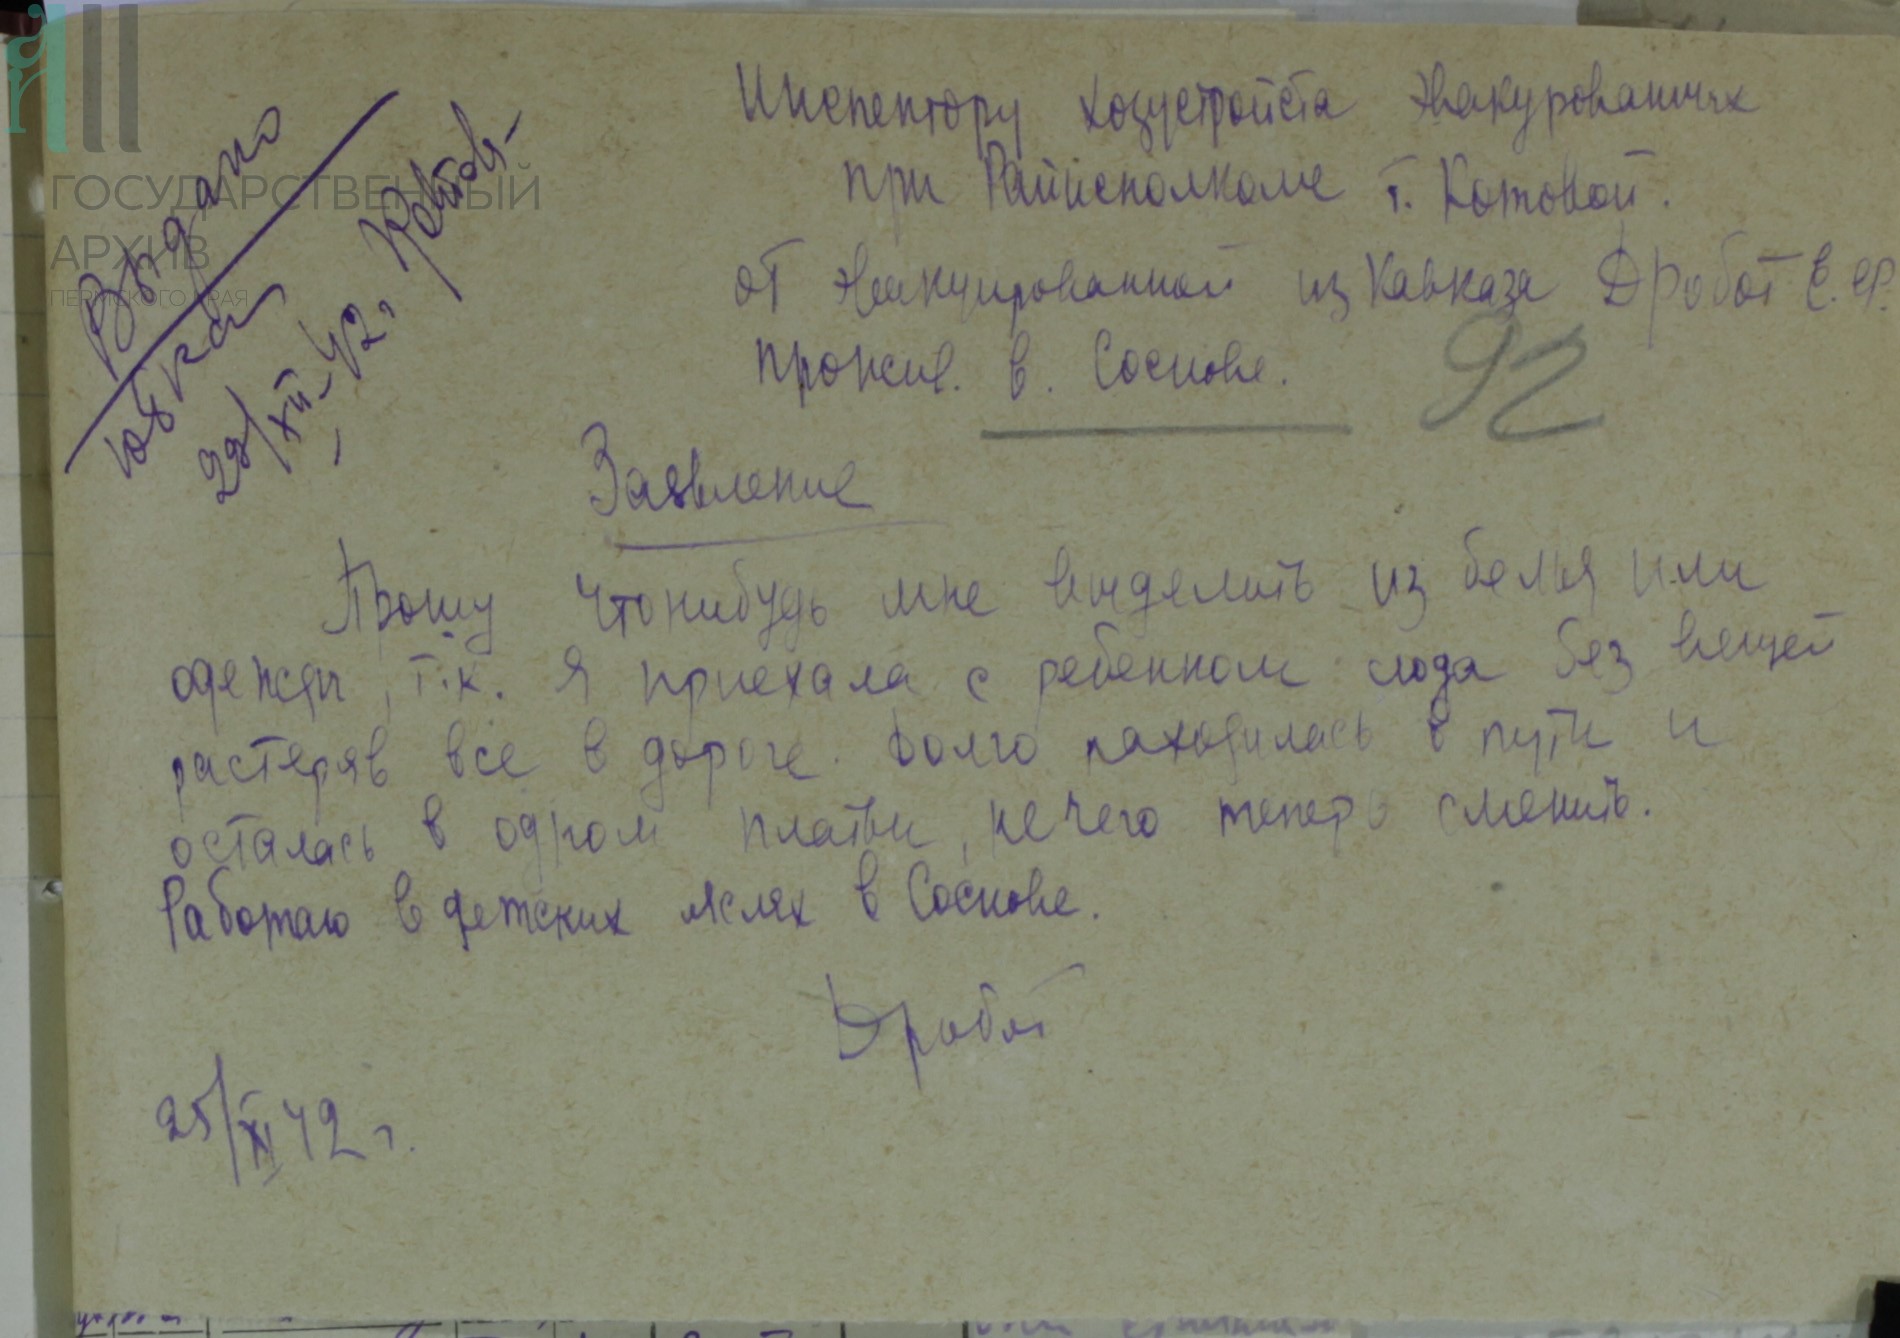 Инспектору хозустройста эвакурованных
при Райисполкоме т. Котовой.
от эвакуированной из Кавказа Дробот Е. Ф.
прожив. в. Соснове.
92
Выдано
юбка
29/XII-42г
Заявление
Прошу чтонибудь мне выделить из белья или
одежды, т.к. я приехала с ребенком сюда без вещей
растеряв все в дороге. Долго находилась в пути и
осталась в одном платьи, нечего теперь сменить.
Работаю в детских яслях в Соснове.
Дробот
25/XI 42 г.
ГОСУДАРСТВЕННЫЙ
АРХИВ
ПЕРМСКОГО КРАЯ